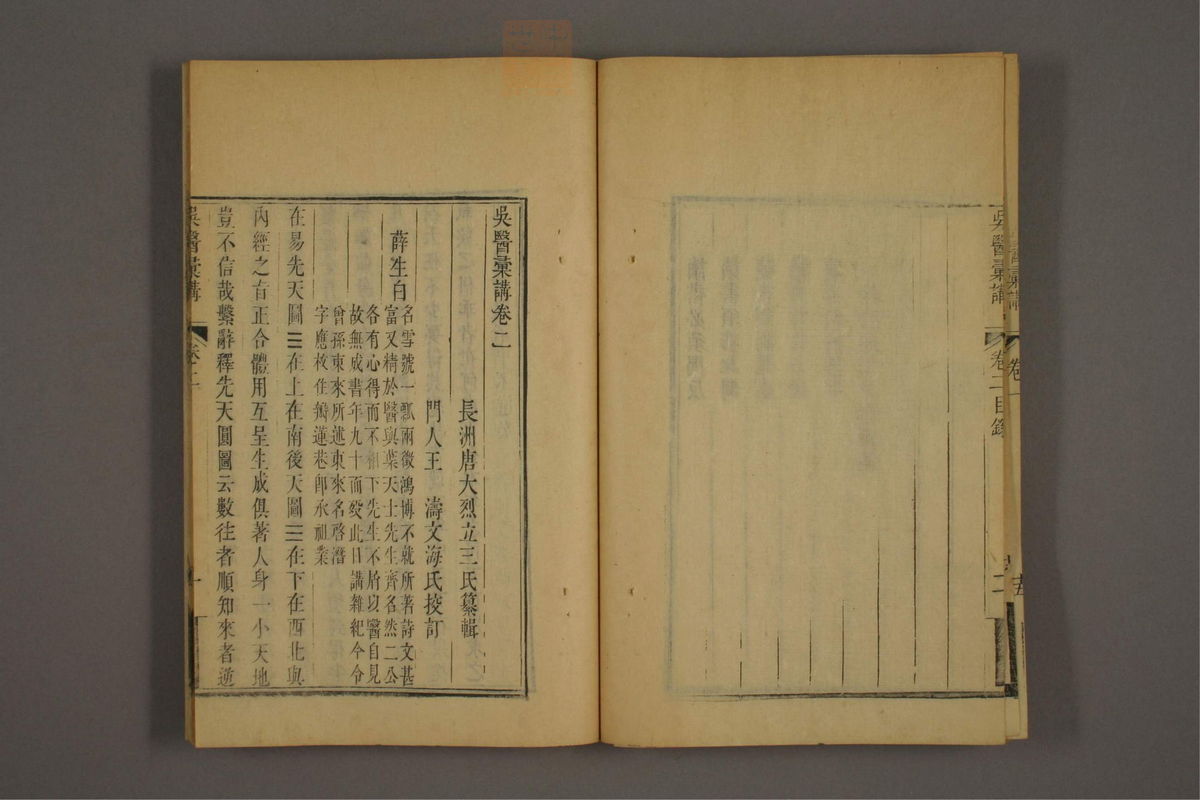 吳醫彙講卷二
長洲唐大烈立三氏纂輯
門人王　濤文海氏挍訂
薛生白
名雪號一瓢兩徵鴻博不就所著詩文甚
富又精於醫與葉天士先生齊名然二公
各有心得而不相下先生不屑以醫自見
故無成書年九十而歿此日講雜紀今令
曾孫東來所述東來名啓潛
字應枚住瓣蓮巷卽永祖業
在易先天圖☰在上在南後天圖☰在下在西北與
內經之旨正合體用互呈生成俱著人身一小天地
豈不信哉繫辭釋先天圓圖云數往者順知來者逆
吳醫彙講
卷二
一
吳醫彙講
卷二目錄
二